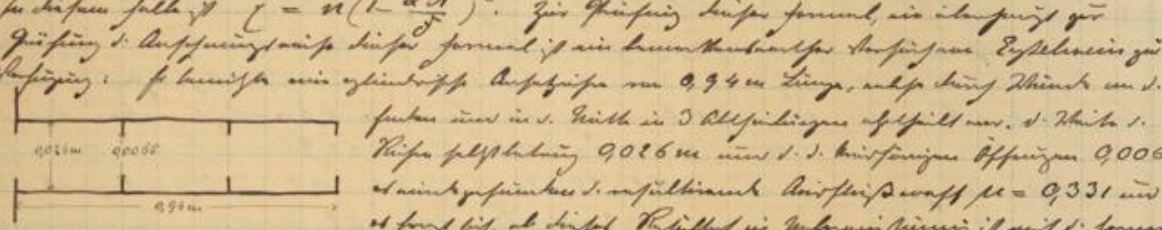 in diesem Falle ist ζ = n(1 - )². Zur Prüfung dieser Formel, wie überhaupt zur
Prüfung d. Anschauungsweise dieser Formel ist ein bemerkenswerther Versuch von Eytelwein zur
Verfügung: Er benutzte eine cylindrische Ansatzröhre von 0,94 m Länge, welche durch Wände an d.
Enden und in d. Mitte in 3 Abtheilungen abgetheilt war. d. Weite d.
Röhre selbst betrug 0,026 m und d. d. kreisförmigen Öffnungen 0,006
es wurde gefunden d. resultirende μ = 0,331 und
0,026 m 0,0065
0,94 m
es fragt sich, ob dieses Resultat in Uebereinstimmung ist mit d. Formel